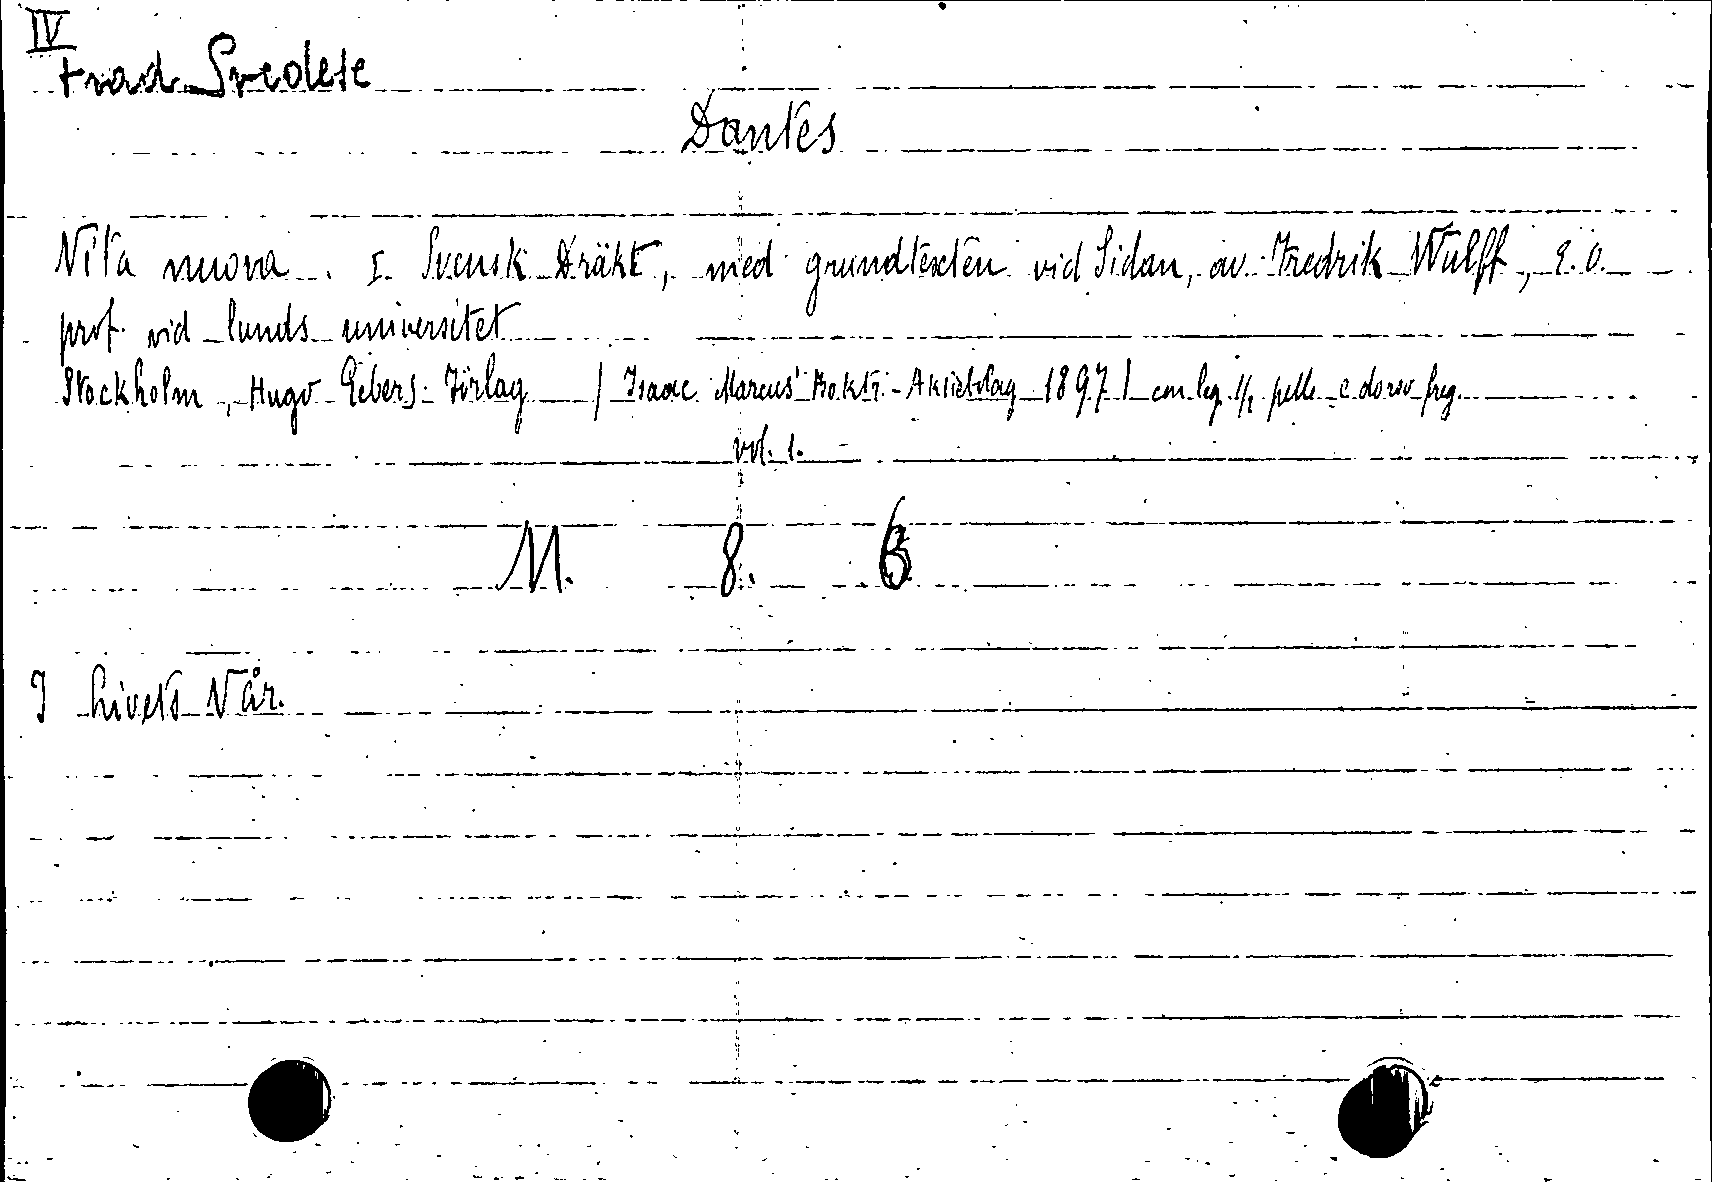 IV
trad. Svedese
Dantes
Vita nuova. I. Svensk Dräkt, med grundtexten vid Sidan, av Fredrik Wulff, e.o.
prof. vid Lunds universitet
Stockholm, Hugo Gebers Förlag / Isaac Marcus' Boktr.-Aktiebolag 1897 / con leg. 1/2 pelle e dorso freg.
vol. 1.
M. 8. 6
I Livets Vår.